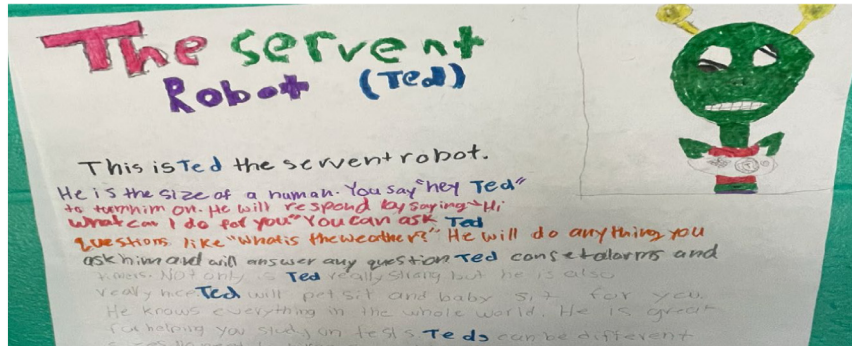 The servent
Robot (Ted)
This is Ted the servent robot.
He is the size of a human. You say "hey Ted"
to turn him on. He will respond by saying "Hi
What can I do for you" You can ask Ted
questions like "what is the weather?" He will do anything you
ask him and will answer any question Ted can set alarms and
timers. Not only is Ted really strong but he is also
really nice. Ted will pet sit and baby sit for you.
He knows everything in the whole world. He is great
for helping you study on tests. Teds can be different